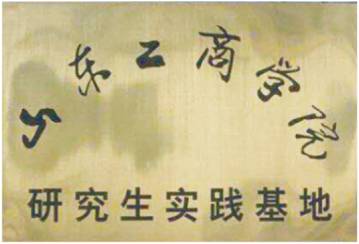 山东工商学院
研究生实践基地